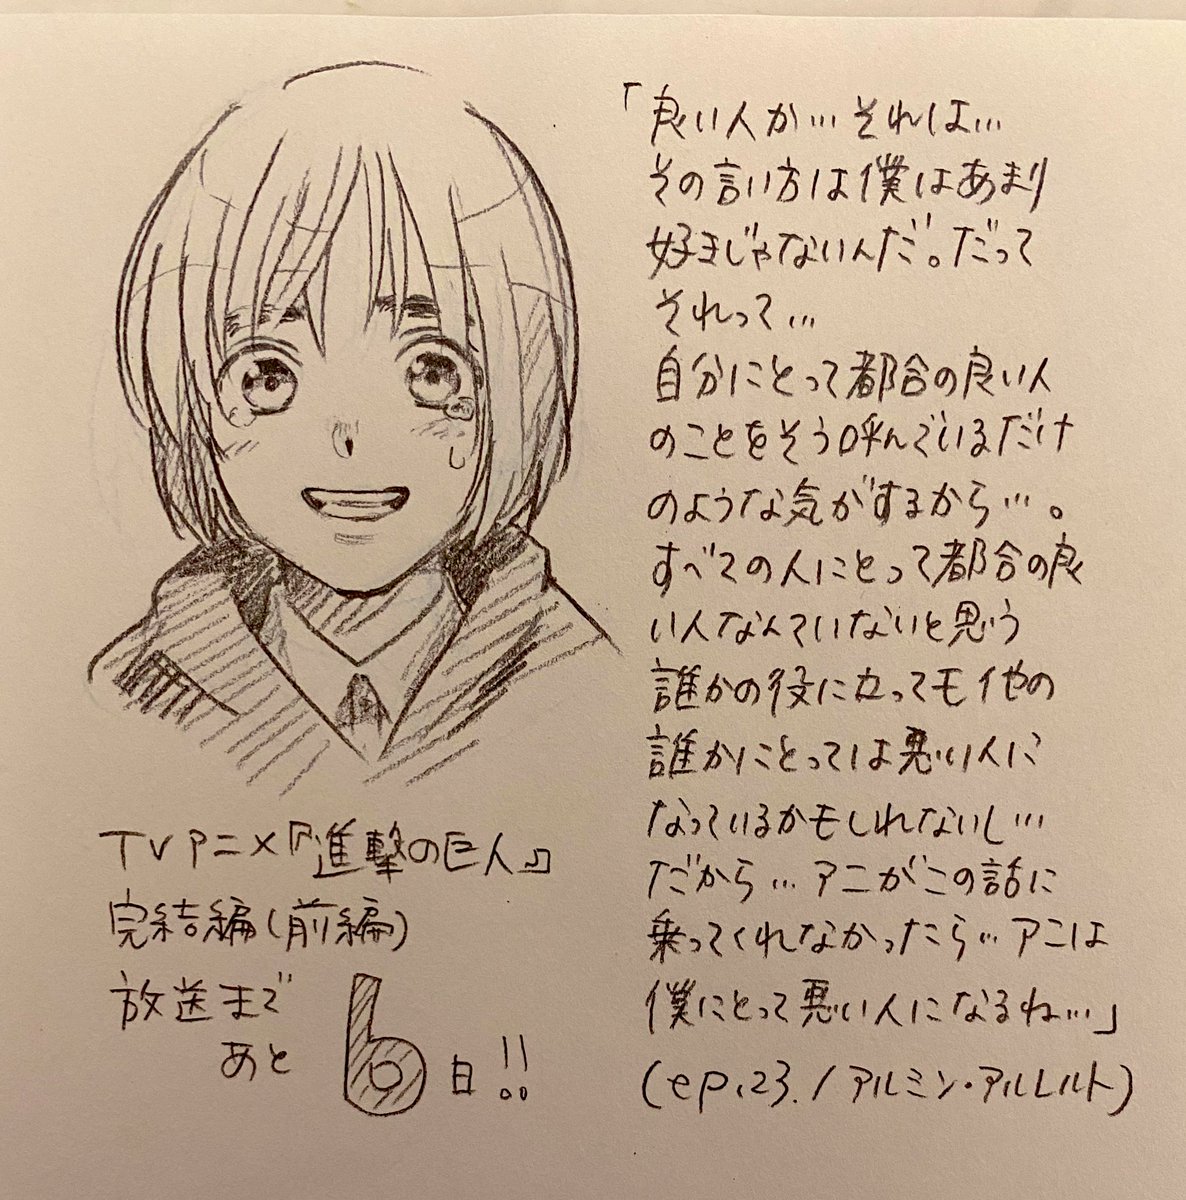 「良い人か…それは…
その言い方は僕はあまり
好きじゃないんだ。だって
それって…
自分にとって都合の良い人
のことをそう呼んでいるだけ
のような気がするから…。
すべての人にとって都合の良
い人なんていないと思う
誰かの役に立ってモ他の
誰かにとっては悪い人に
なっているかもしれないし…
だから…アニがこの話に
乗ってくれなかったら…アニは
僕にとって悪い人になるね…」
(ep.23./アルミン・アルレルト)
TVアニメ『進撃の巨人』
完結編(前編)
放送まで
あと 6日!!